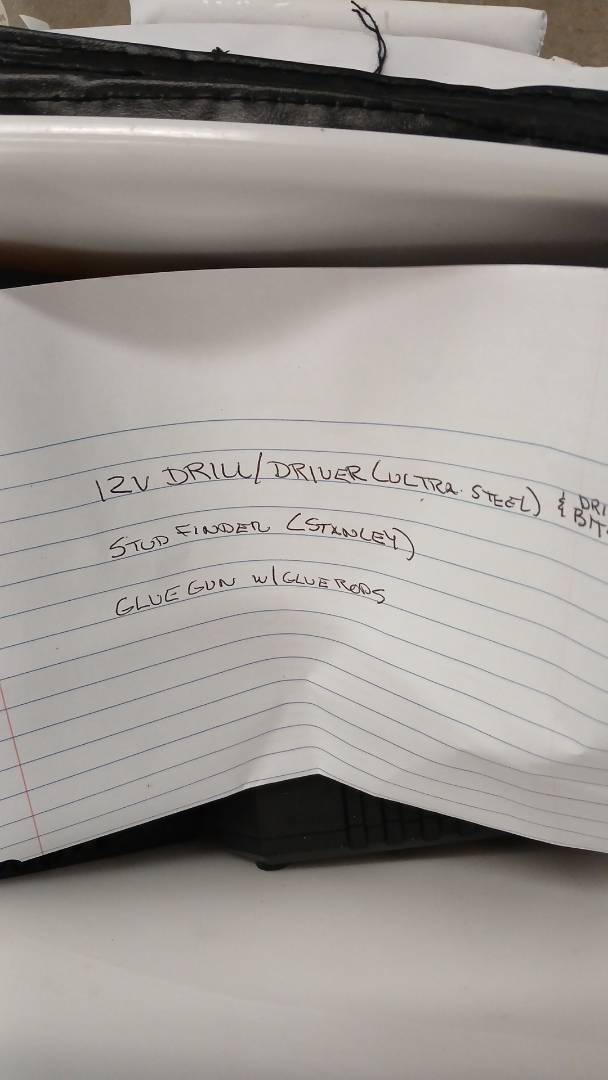 12V DRILL/DRIVER (ULTRA STEEL) & DRI
& BIT
STUD FINDER (STANLEY)
GLUE GUN W/GLUE RODS